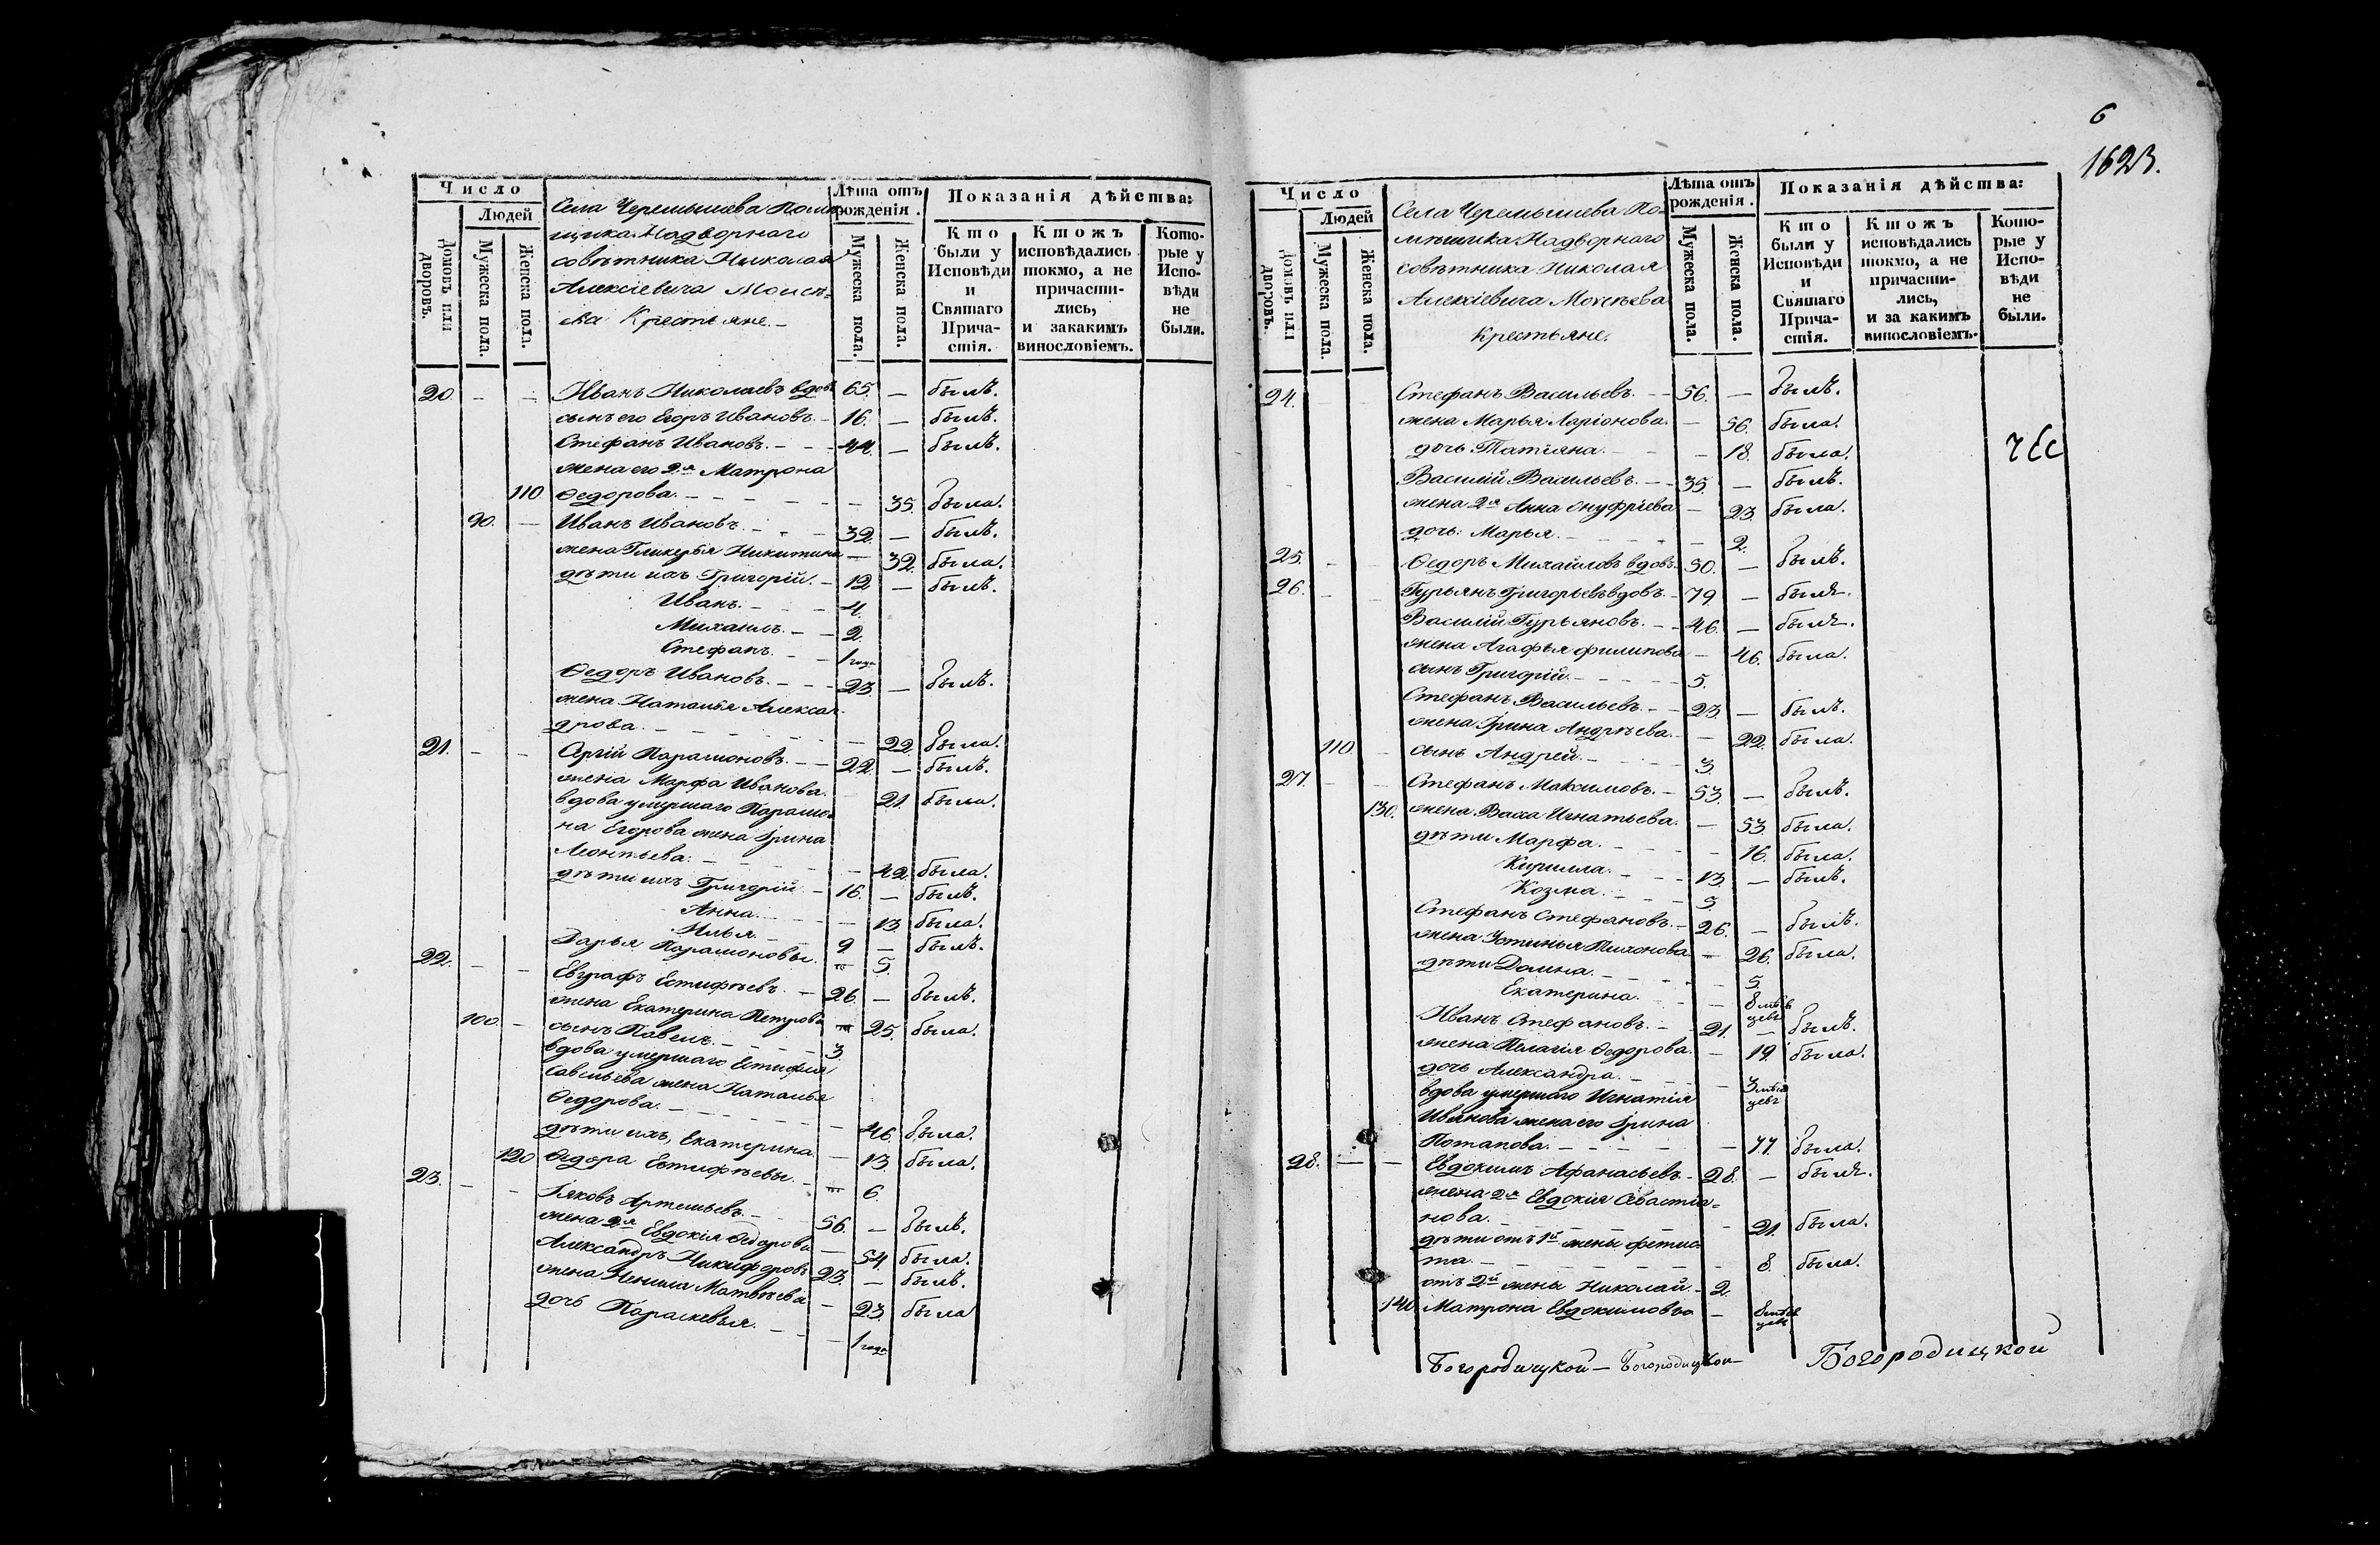 Число
Людей
Домовъ или дворовъ.
Мужеска пола.
Женска пола.
Села Черемышева Поме-
щика Надворнаго
совѣтника Николая
Алексіевича Моисѣ-
ева Крестьяне.
Лѣта отъ рожденія.
Мужеска пола.
Женска пола.
Показанія дѣйства:
Кто были у Исповѣди и Святаго Причастія.
Ктожъ исповѣдались токмо, а не причастились, и закакимъ винословіемъ.
Которые у Исповѣди не были.
20. — — Иванъ Николаевъ вдовъ 65. — былъ.
сынъ его Егоръ Ивановъ. — 16. — былъ.
Стефанъ Ивановъ. — — 44. — былъ.
жена его 2я Матрона
110 Ѳедорова. — — — 35. была.
90. — Иванъ Ивановъ. — — 32. — былъ.
жена Гликерья Никитина — 32. была.
дѣти ихъ Григорій. — 12 — былъ.
Иванъ. — — 4.
Михаилъ. — — 2.
Стефанъ. — — 1 года
Ѳедоръ Ивановъ. — — 23. — былъ.
жена Наталья Алексан-
дрова. — — — 22. была.
21. — — Сергій Парамоновъ. — — 22. — былъ.
жена Марфа Иванова. 21. была.
вдова умершаго Парамо-
на Егорова жена Ірина
Леонтьева. — — 42. была.
дѣти ихъ Григорій — 16. — былъ.
Анна. — — 13. была.
Илья. — — 9 — былъ.
Дарья Парамоновы. — 5.
22. — — Евграфъ Естифѣевъ. — 26. — былъ.
жена Екатерина Петрова — 25. была.
100. — сынъ Павелъ. — — 3.
вдова умершаго Естифея
Савельева жена Наталья
Ѳедорова. — — — 46. была.
дѣти ихъ, Екатерина. — 13. была.
120 Ѳедора Естифѣевы. — 6.
23. — — Іаковъ Артемьевъ. — 56. — былъ.
жена 2я Евдокія Ѳедорова — 54. была.
Александръ Никифоровъ 23. — былъ.
жена Ненила Матвѣева — 23. была
дочь Параскевья. — — 1 года
6
1623.
Число
Людей
Домовъ или дворовъ.
Мужеска пола.
Женска пола.
Села Черемышева По-
мѣщика Надворнаго
совѣтника Николая
Алексіевича Моисѣева
Крестьяне.
Лѣта отъ рожденія.
Мужеска пола.
Женска пола.
Показанія дѣйства:
Кто были у Исповѣди и Святаго Причастія.
Ктожъ исповѣдались токмо, а не причастились, и за какимъ винословіемъ.
Которые у Исповѣди не были.
24. Стефанъ Васильевъ. — — 56. — былъ.
жена Марья Ларіонова. — 56. была.
дочь Татіяна. — — 18. была.
Василій Васильевъ. — — 35. — былъ.
жена 2я Анна Онуфріева — 23. была.
дочь: Марья. — — — 2.
25. — Ѳедоръ Михайловъ вдовъ. 50. — былъ.
26. — — Гурьянъ Григорьевъ вдовъ. — 79. — былъ.
Василій Гурьяновъ. — — 46. — былъ.
жена Агафья Филипова — 46. была.
сынъ Григорій. — — — 5.
Стефанъ Васильевъ. — — 23. — былъ.
жена Ірина Андрѣева. — 22. была.
110. — сынъ Андрей. — — — 3.
27. — — Стефанъ Максимовъ. — 53. — былъ.
130. жена Васса Игнатьева. — 53. была.
дѣти Марфа. — — — 16. была.
Кирилла. — — 13. — былъ.
Козма. — — 5
Стефанъ Стефановъ. — 26. — былъ.
жена Устинья Тихонова. — 26. была.
дѣти Домна. — — — 5.
Екатерина. — — 8 мѣсяцевъ
Иванъ Стефановъ. — — 21. — былъ.
жена Пелагія Ѳедорова. — 19. была.
дочь Александра. — — 3 мѣсяцевъ
вдова умершаго Игнатія
Иванова жена его Ірина
Потапова. — — — 77. была.
28. — — Евдокимъ Афанасьевъ. — 28. — былъ.
жена 2я Евдокія Севастіа-
нова. — — — 21. была.
дѣти отъ 1й жены Фетис-
та. — — — 8. была.
отъ 2й жены Николай. — 2.
140. Матрона Евдокимовы — 8 мѣсяцевъ
Богородицкой — Богородицкой — Богородицкой